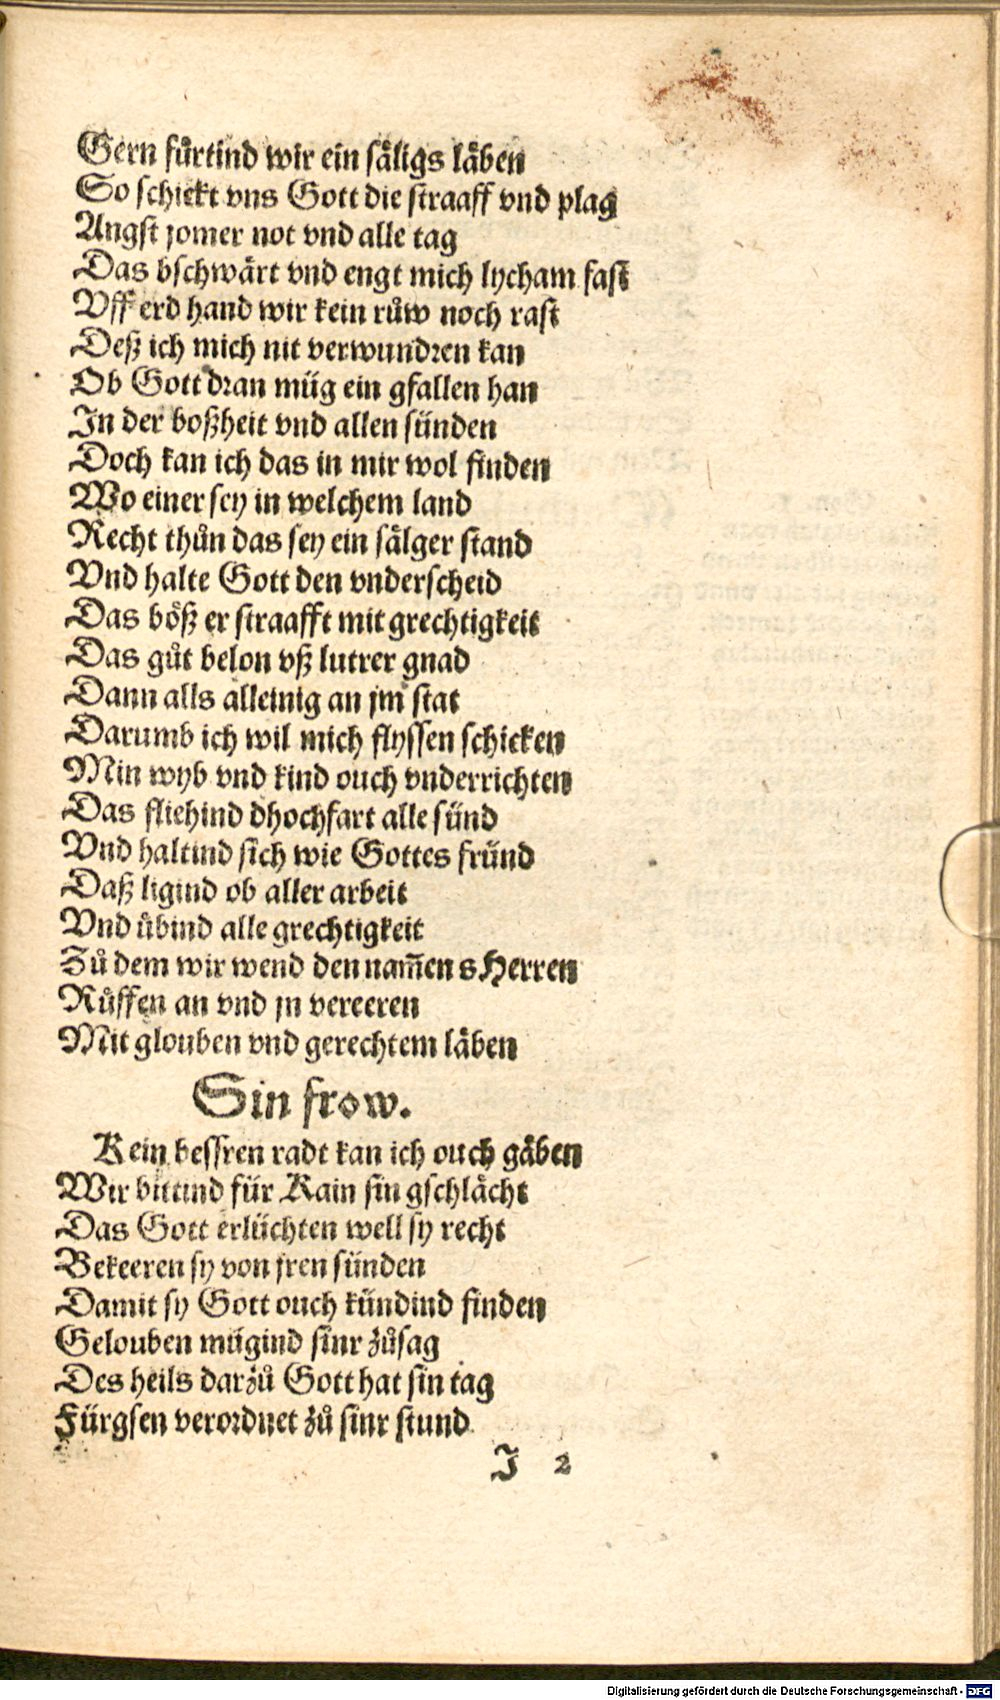 Gern fuͤrtind wir ein saͤligs laͤben
So schickt vns Gott die straaff vnd plag
Angst jomer not vnd alle tag
Das bschwaͤrt vnd engt mich lycham fast
Vff erd hand wir kein ruͦw noch rast
Deß ich mich nit verwundren kan
Ob Gott dran müg ein gfallen han
In der boßheit vnd allen sünden
Doch kan ich das in mir wol finden
Wo einer sey in welchem land
Recht thuͦn das sey ein saͤlger stand
Vnd halte Gott den vnderscheid
Das boͤß er straafft mit grechtigkeit
Das guͦt belon vß lutrer gnad
Dann alls alleinig an jm stat
Darumb ich wil mich flyssen schicken
Min wyb vnd kind ouch vnderrichten
Das fliehind dhochfart alle sünd
Vnd haltind sich wie Gottes fründ
Daß ligind ob aller arbeit
Vnd uͤbind alle grechtigkeit
Zuͦ dem wir wend den nam̄en s Herren
Ruͦffen an vnd jn vereeren
Mit glouben vnd gerechtem laͤben
Sin frow.
Kein bessren radt kan ich ouch gaͤben
Wir bittind für Kain sin gschlaͤcht
Das Gott erlüchten well sy recht
Bekeeren sy von jren sünden
Damit sy Gott ouch kündind finden
Gelouben mügind sinr zuͦsag
Des heils darzuͦ Gott hat sin tag
Fürgsen verordnet zuͦ sinr stund
J 2
Digitalisierung gefördert durch die Deutsche Forschungsgemeinschaft - DFG